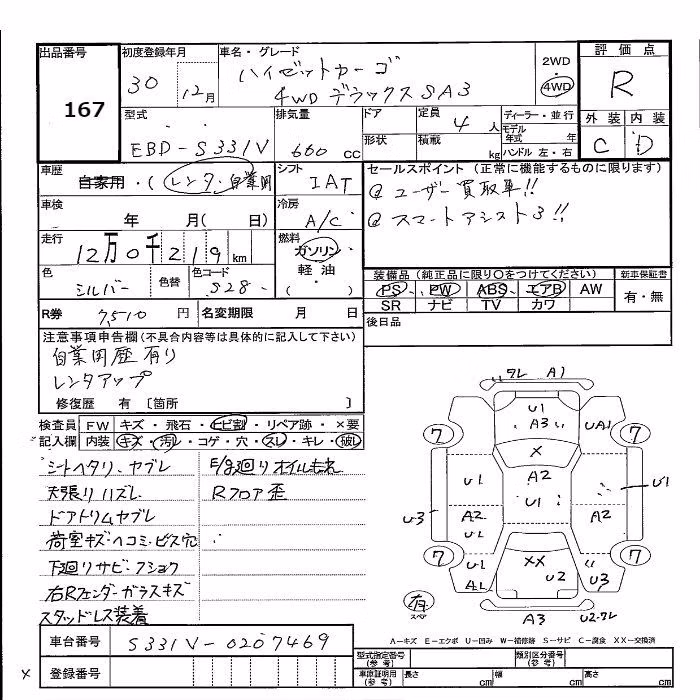 出品番号
167
初度登録年月
30 12月
車名・グレード
ハイゼットカーゴ
4WD デラックスSA3
2WD
4WD
評価点
R
外装 内装
C D
型式
EBD-S331V
排気量
660 cc
ドア
定員 4人
形状
積載 kg
ディーラー・並行
モデル年式 年
ハンドル 左・右
車歴
自家用・(レンタ・自業用
シフト
IAT
セールスポイント(正常に機能するものに限ります)
@ ユーザー買取車!!
@ スマートアシスト3!!
車検
年 月( 日)
冷房
A/C
走行
12万0千219km
燃料
ガソリン
軽油
( ・ )
色
シルバー
色替
色コード
S28
装備品(純正品に限り○をつけてください)
新車保証書
PS PW ABS エアB AW
有・無
SR ナビ TV カワ
R券 7,510 円
名変期限 月 日
後日品
注意事項申告欄(不具合内容等は具体的に記入して下さい)
自業用歴有り
レンタアップ
修復歴 有 〔箇所 〕
検査員記入欄
FW キズ・飛石・ヒビ割・リペア跡・×要
内装 キズ・汚レ・コゲ・穴・スレ・キレ・破レ
シートヘタリ、ヤブレ
天張リハズレ
ドアトリムヤブレ
荷室キズ・ヘコミ・ビス穴
下廻リサビ・フショク
右Rフェンダーガラスキズ
スタッドレス装着
E/g廻りオイルもれ
Rフロア歪
ワレ A1
U1
A3
UA1
7 7
X
U1 A2 U1
U3 A2 U1 A2
U1
7 7
XX
U1 A1 U2 U3
有 スペア
A3 U2-ワレ
A-キズ E-エクボ U-凹み W-補修跡 S-サビ C-腐食 XX-交換済
車台番号
S331V-0207469
登録番号
×
型式指定番号(参考)
類別区分番号(参考)
車庫証明用(参考) 長さ cm 幅 cm 高さ cm